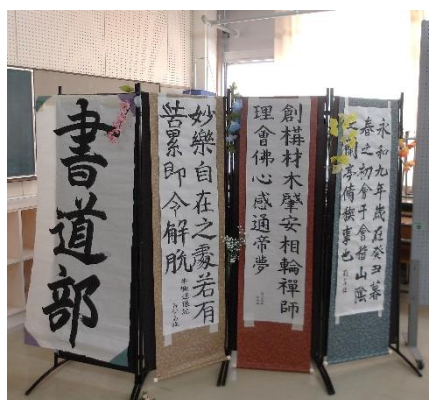 書道部
妙樂自在之處若有
苦累即令解脱
創構材木肇安相輪禪師
理會佛心感通帝夢
永和九年歳在癸丑暮
春之初會于會稽山陰
之蘭亭脩禊事也